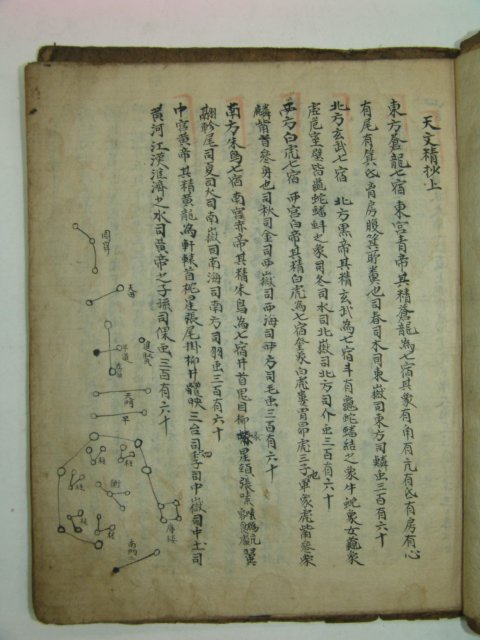 天文精抄上
東方蒼龍七宿 東宮青帝其精蒼龍為七宿其象有角有亢有氐有房有心
有尾有箕氐胷房腹箕所糞也司春司木司東嶽司東方司鱗虫三百有六十
北方玄武七宿 北方黒帝其精玄武為七宿斗有龜蛇蟠結之象牛蛇象女龜象
虛危室壁皆龜蛇蟠虯之象司冬司水司北嶽司北方司介虫三百有六十
西方白虎七宿 西宮白帝其精白虎為七宿奎象白虎婁胃昴虎三子畢象虎觜參象
麟觜首參身也司秋司金司西嶽司西海司西方司毛虫三百有六十
南方朱鳥七宿 南宮赤帝其精朱鳥為七宿井首鬼目柳喙星頸張嗉翼
翮軫尾司夏司火司南嶽司南海司南方司羽虫三百有六十
中宮黃帝其精黃龍為軒轅首枕星張尾掛柳井體映三台司四季司中嶽司中土司
黃河江漢淮濟之水司黃帝之子孫司倮虫三百有六十
周鼎
天田
平道
進賢
天門
平
柱
柱
柱
衡
柱
柱
庫樓
南門